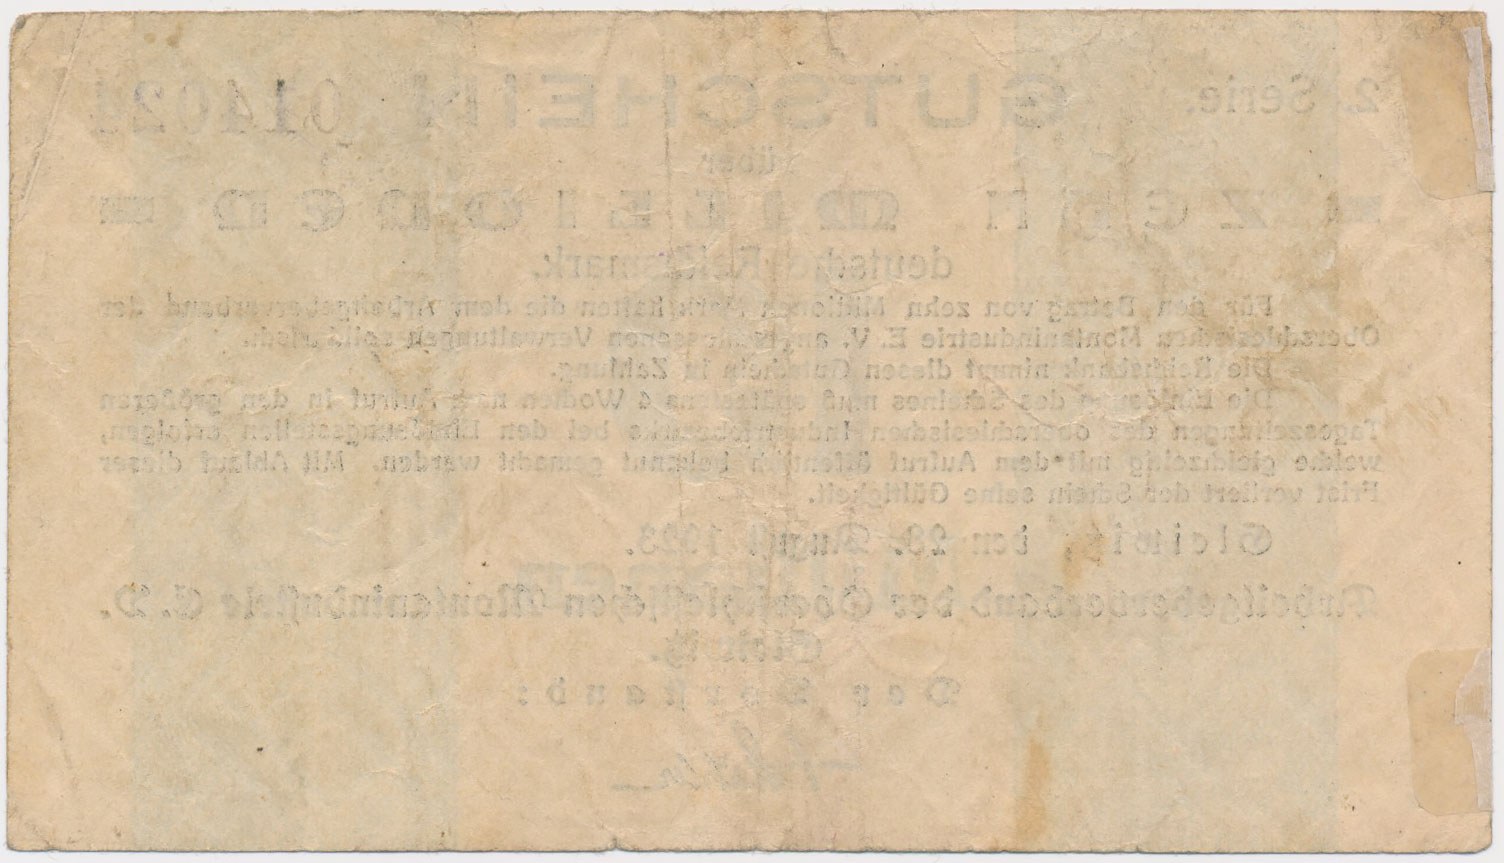 2. Serie. GUTSCHEIN
über
- ZEHN MILLIONEN -
deutsche Reichsmark.
Für den Betrag von zehn Millionen Mark haften die dem Arbeitgeberverband der
Oberschlesischen Montanindustrie E. V. angeschlossenen Verwaltungen solidarisch.
Die Reichsbank nimmt diesen Gutschein in Zahlung.
Die Einlösung des Scheines muß spätestens 4 Wochen nach Aufruf in den größeren
Tageszeitungen des oberschlesischen Industriebezirks bei den Einlösungsstellen erfolgen,
welche gleichzeitig mit dem Aufruf öffentlich bekannt gemacht werden. Mit Ablauf dieser
Frist verliert der Schein seine Gültigkeit.
Gleiwitz, den 23. August 1923.
Arbeitgeberverband der Oberschlesischen Montanindustrie E. V.
Gleiwitz.
Der Vorstand: